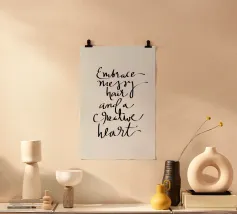 Embrace
messy
hair
and a
creative
heart